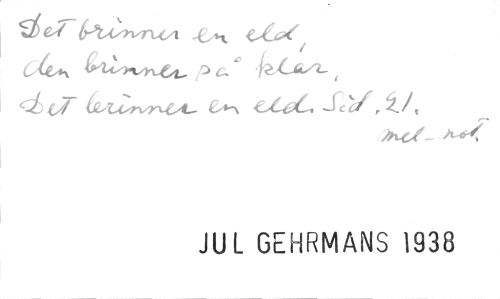 Det brinner en eld,
den brinner så klar,
Det brinner en eld. Sid. 21.
mel-not.
JUL GEHRMANS 1938